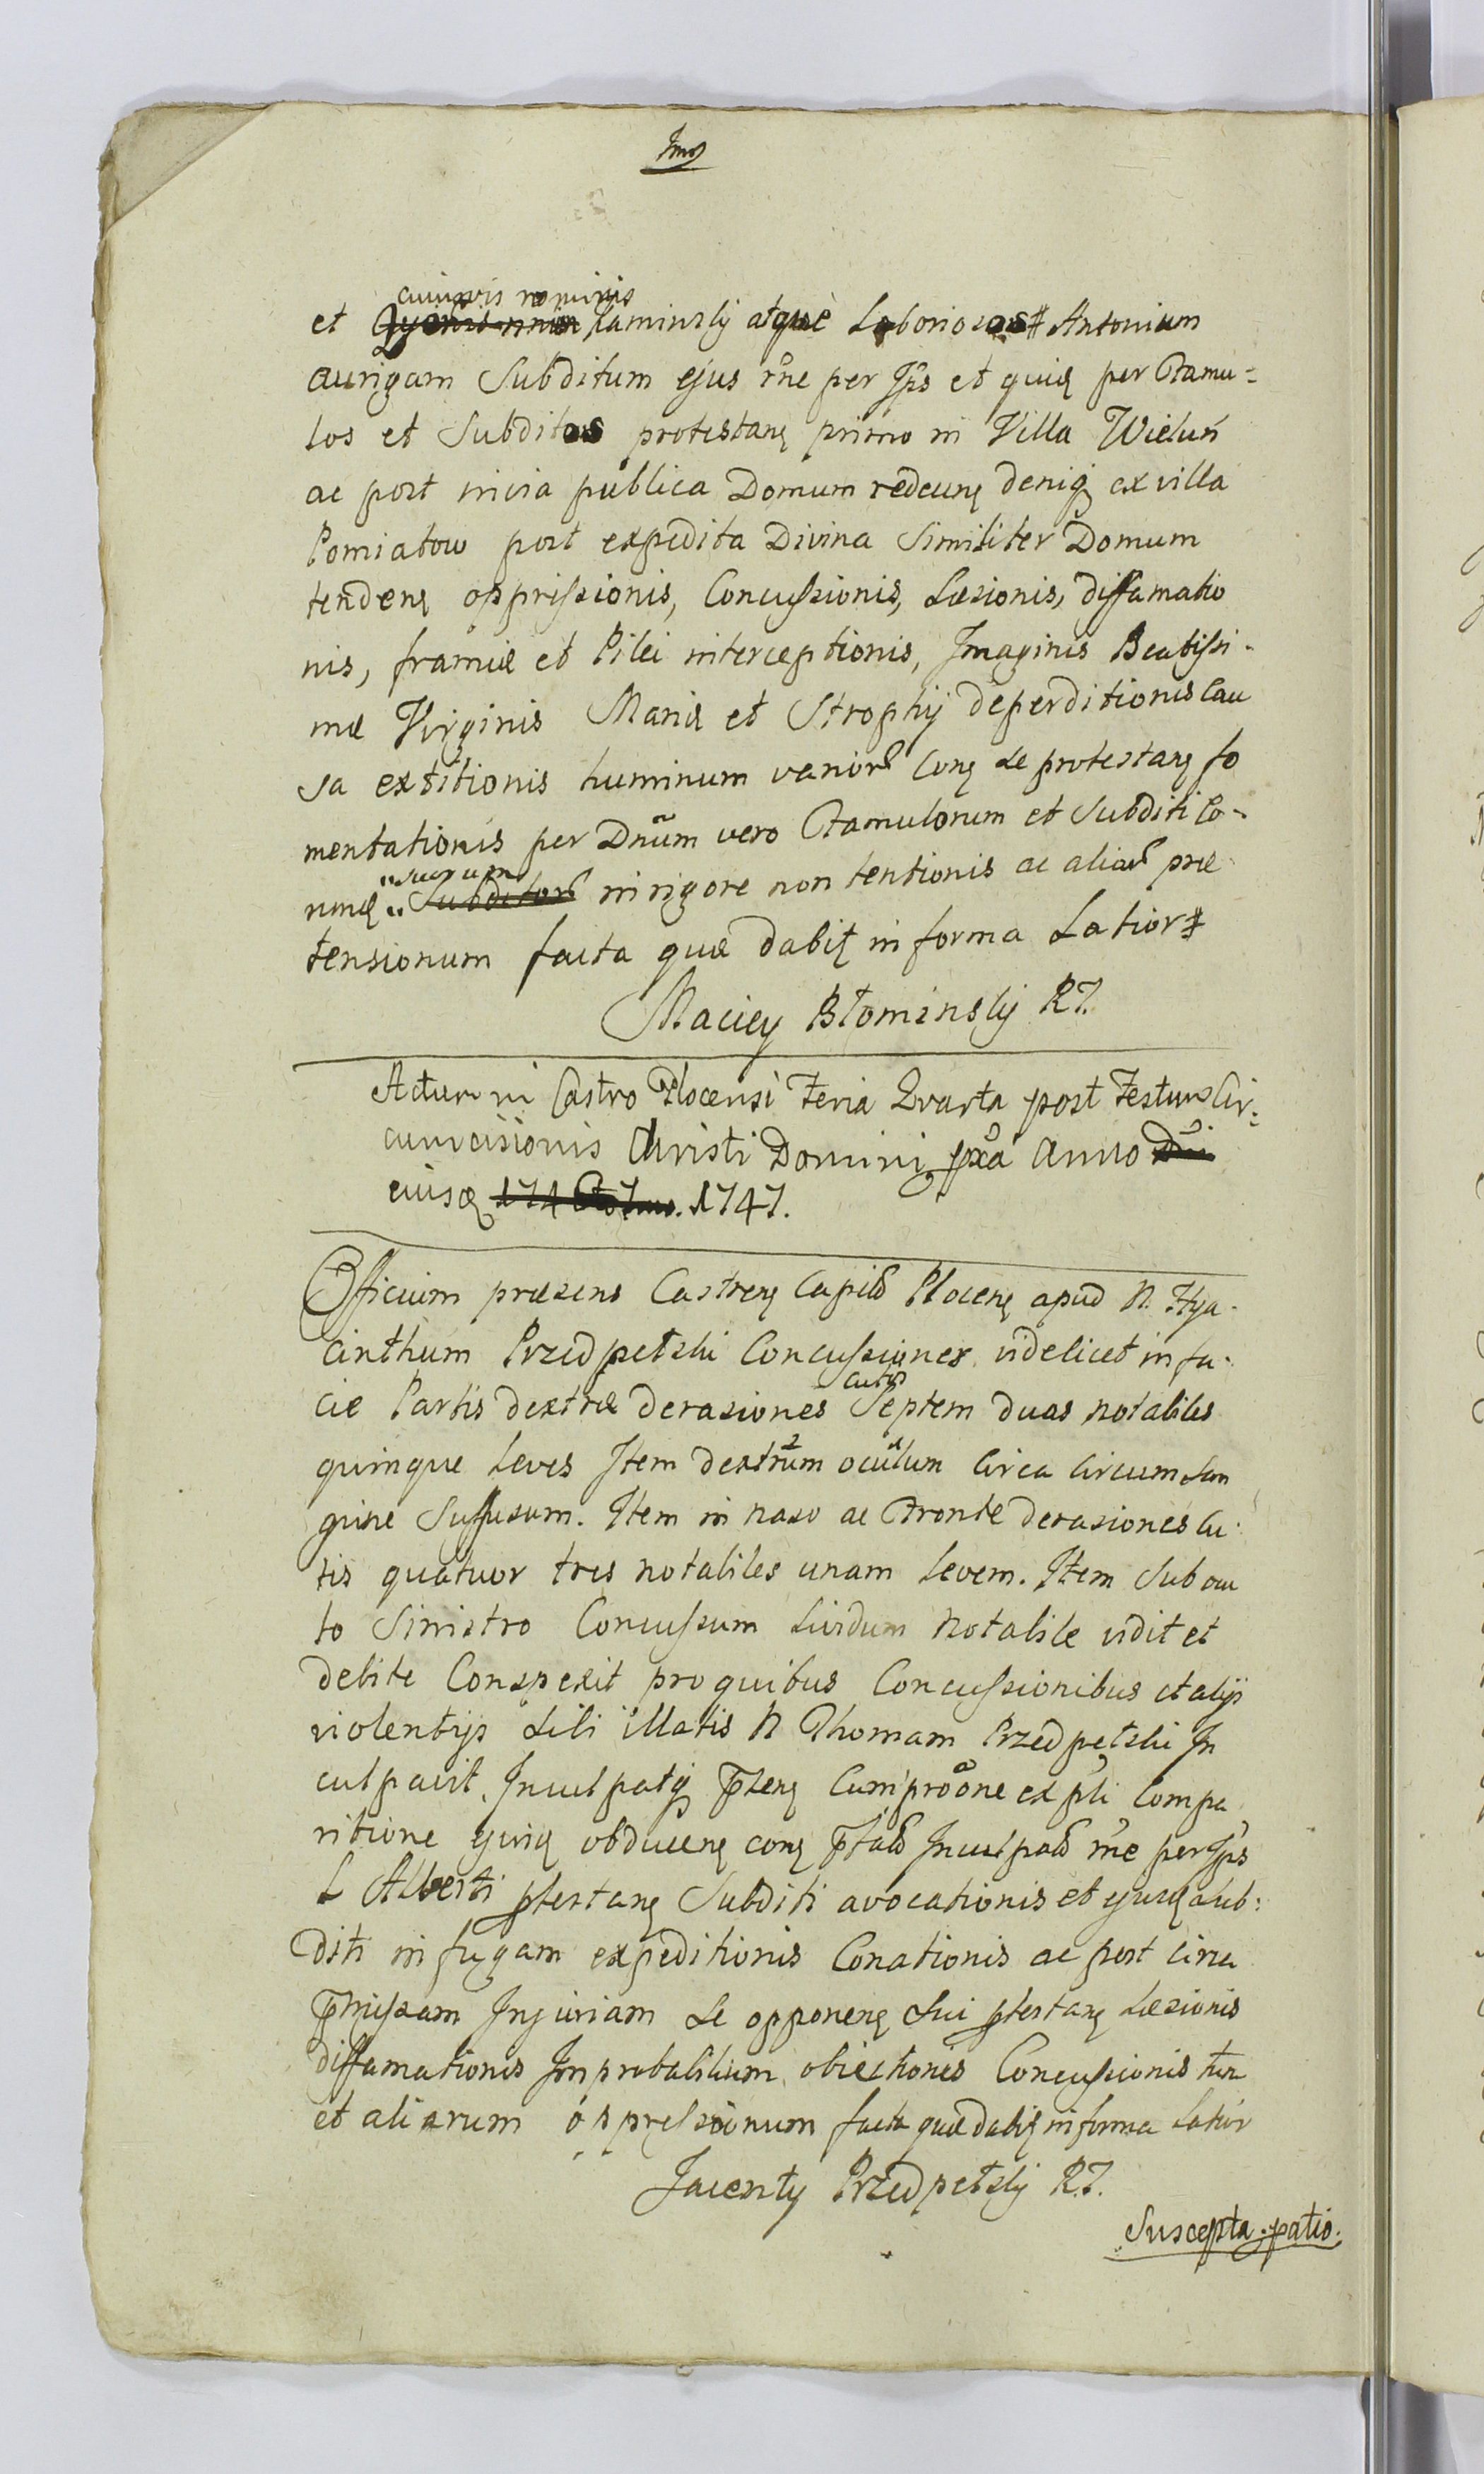 cuiusvis nominis
et Kaminsky atque Laboriosos Antonium
aurigam Subditum ejus rñe per Ips et quiꝫ per Famu=
los et Subditos protestanꝫ primo in Villa Wieluń
ac post in via publica Domum redeunꝫ deniqꝫ ex villa
Pomiatow post expedita Divina Similiter Domum
tendenꝫ oppressionis, Concussionis, Læsionis, diffamatio
nis, frameæ et Pilei interceptionis, Imaginis Beatissi-
mæ Virginis Mariæ et Strophij deperditionis Cau
sa extitionis hominum varior Conꝫ se protestanꝫ fo
mentationis per Dnum vero Famulorum et Subditi Co-
nunꝫ suorum in rigore non tentionis ac aliar præ
tensionum facta quæ dabiꝫ in forma Latior
Maciey Błominsky RT.
Actum in Castro Plocensi Feria Qvarta post Festum Cir=
cumcisionis Christi Domini pxa Anno
eiusꝫ 1747.
Officium præsens Castrenꝫ Capitł Plocenꝫ apud N. Hya-
cinthum Przedpełski Concussiones videlicet in fa-
cie Partis dextræ derasiones cutis Septem duas notabiles
quinque leves Item dextrum oculum circa circum San
guine Suffusum. Item in naso ac Fronte derasiones Cu-
tis quatuor tres notabiles unam levem. Item Sub ocu
lo Sinistro Concussum lividum notabile vidit et
debite Conspexit pro quibus Concussionibus et alijs
violentijs Sibi illatis N Thomam Przedpełski In
culpavit. Inculpatqꝫ
ritione ejusꝫ obducenꝫ conꝫ Inculpatł rñe per Ips
L Alberti ptestanꝫ Subditi avocationis et ejusꝫ Sub=
diti in fugam expeditionis Conationis ac post circa
pmissam Injuriam Se opponenꝫ Sui ptestanꝫ Læsionis
diffamationis Improbabilium obiectionis Concussionis
et aliarum oppressionum facta quæ dabiꝫ in forma Latior
Jacenty Przedpełsky RT.
Suscepta. ptatio.